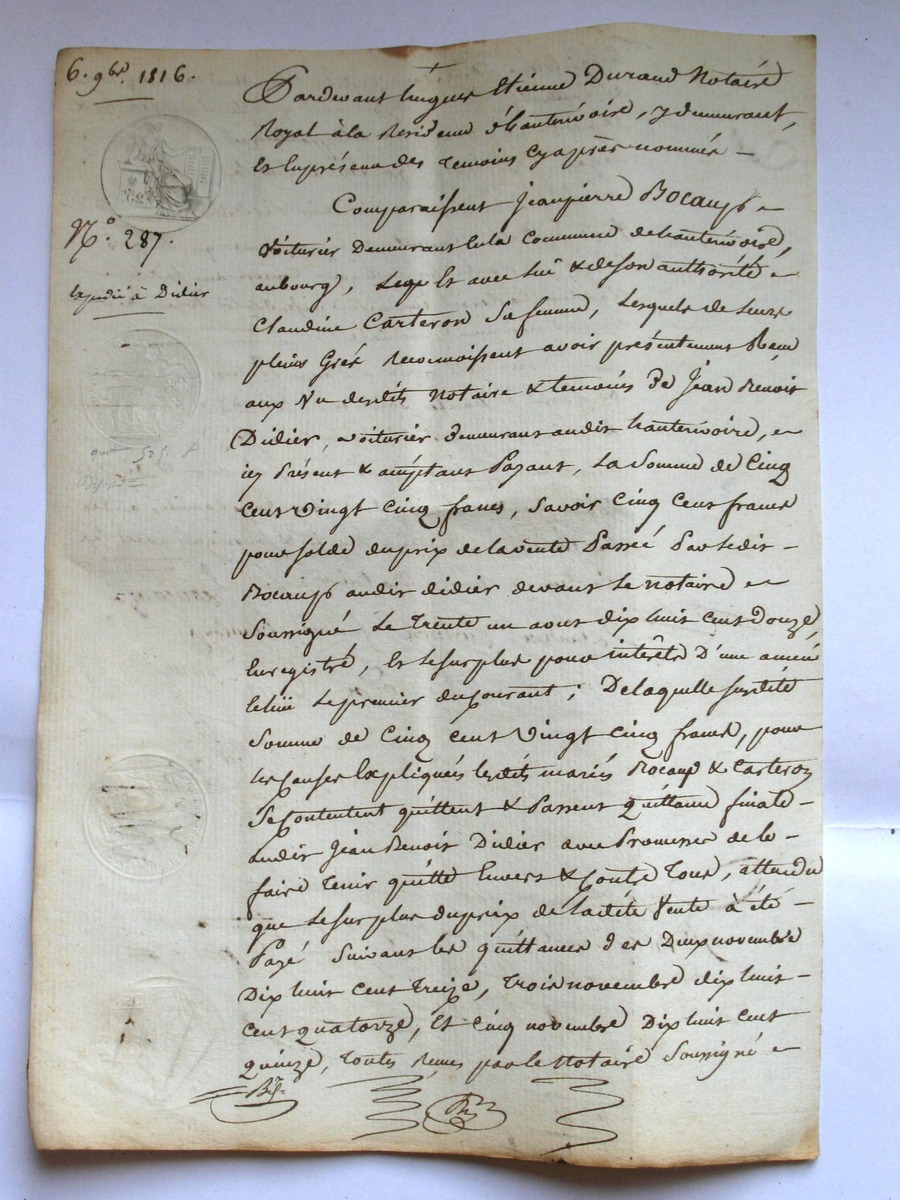 6. 9bre 1816.
Pardevant hugues Etienne Durand Notaire
Royal à la Residence d'hauterivoire, y demeurant,
Et En présence des temoins Cy après nommés –
N.º 287.
Comparaissent Jean pierre Bocaup
Voiturier Demeurant En la Commune de hauterivoire,
Expedié à Didier
aubourg, Lequel Et avec lui & de son authorité
Claudine Carteron Sa femme, Lesquels de Leurs
pleins Gréz Reconnoissent avoir présentement Recu
aux Vu desdits Notaire & temoins De Jean Benoit
Didier, voiturier demeurant audit hauterivoire,
525 f
icy Présent & acceptant Payant, La Somme de Cinq
Cent Vingt Cinq francs, Savoir Cinq Cent francs
pour solde du prix de la vente Passée Par ledit –
Bocaup audit didier devant Le notaire
Soussigné Le Trente un aout dix huit Cent Douze
Enregistré, Et le surplus pour intérêts D'une année
Echüe Le premier du Courant ; De laquelle susdite
Somme de Cinq cent Vingt Cinq francs, pour
les Causes Expliquées lesdits mariés Bocaup & Carteron
Se Contentent quittent & Passent quittance finale –
audit Jean Benoit Didier avec Promesse de le –
faire Tenir quitte Envers & Contre Tous, attendu
que Le surplus du prix de ladite Vente à été –
Payé Suivant les quittances des Deux novembre
Dix huit cent Treize, Trois novembre dix huit –
Cent quatorze, Et Cinq novembre Dix huit Cent
quinze, Toutes Reçues par le Notaire Soussigné